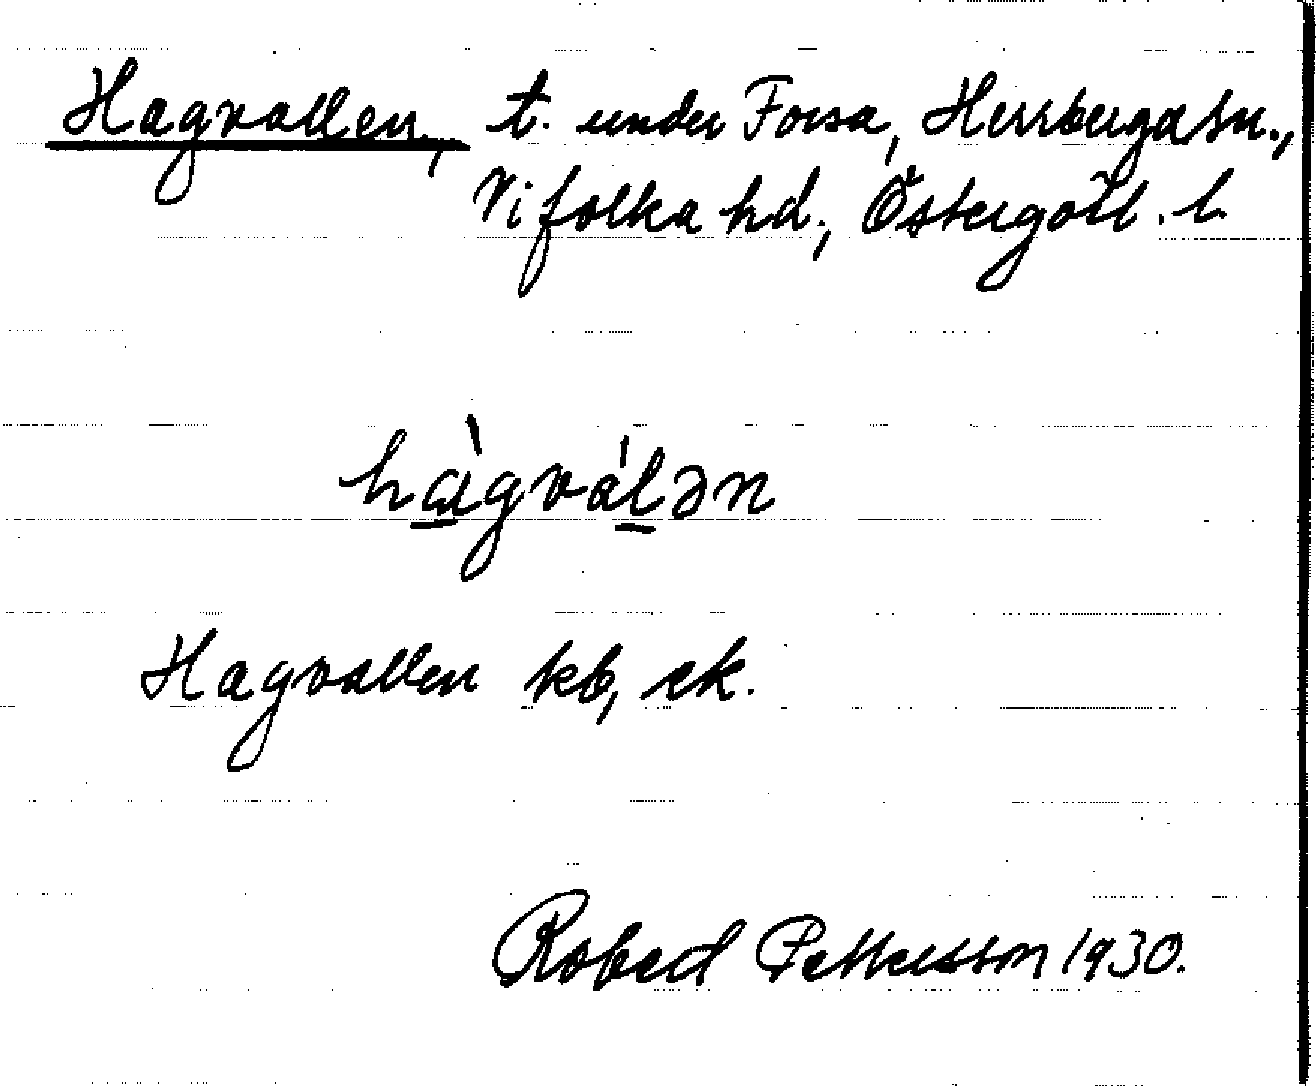 Hagvallen, t. under Forsa, Herrberga sn.,
Vifolka hd., Östergötl. l.
hàgválən
Hagvallen kb, ek.
Robert Pettersson 1930.